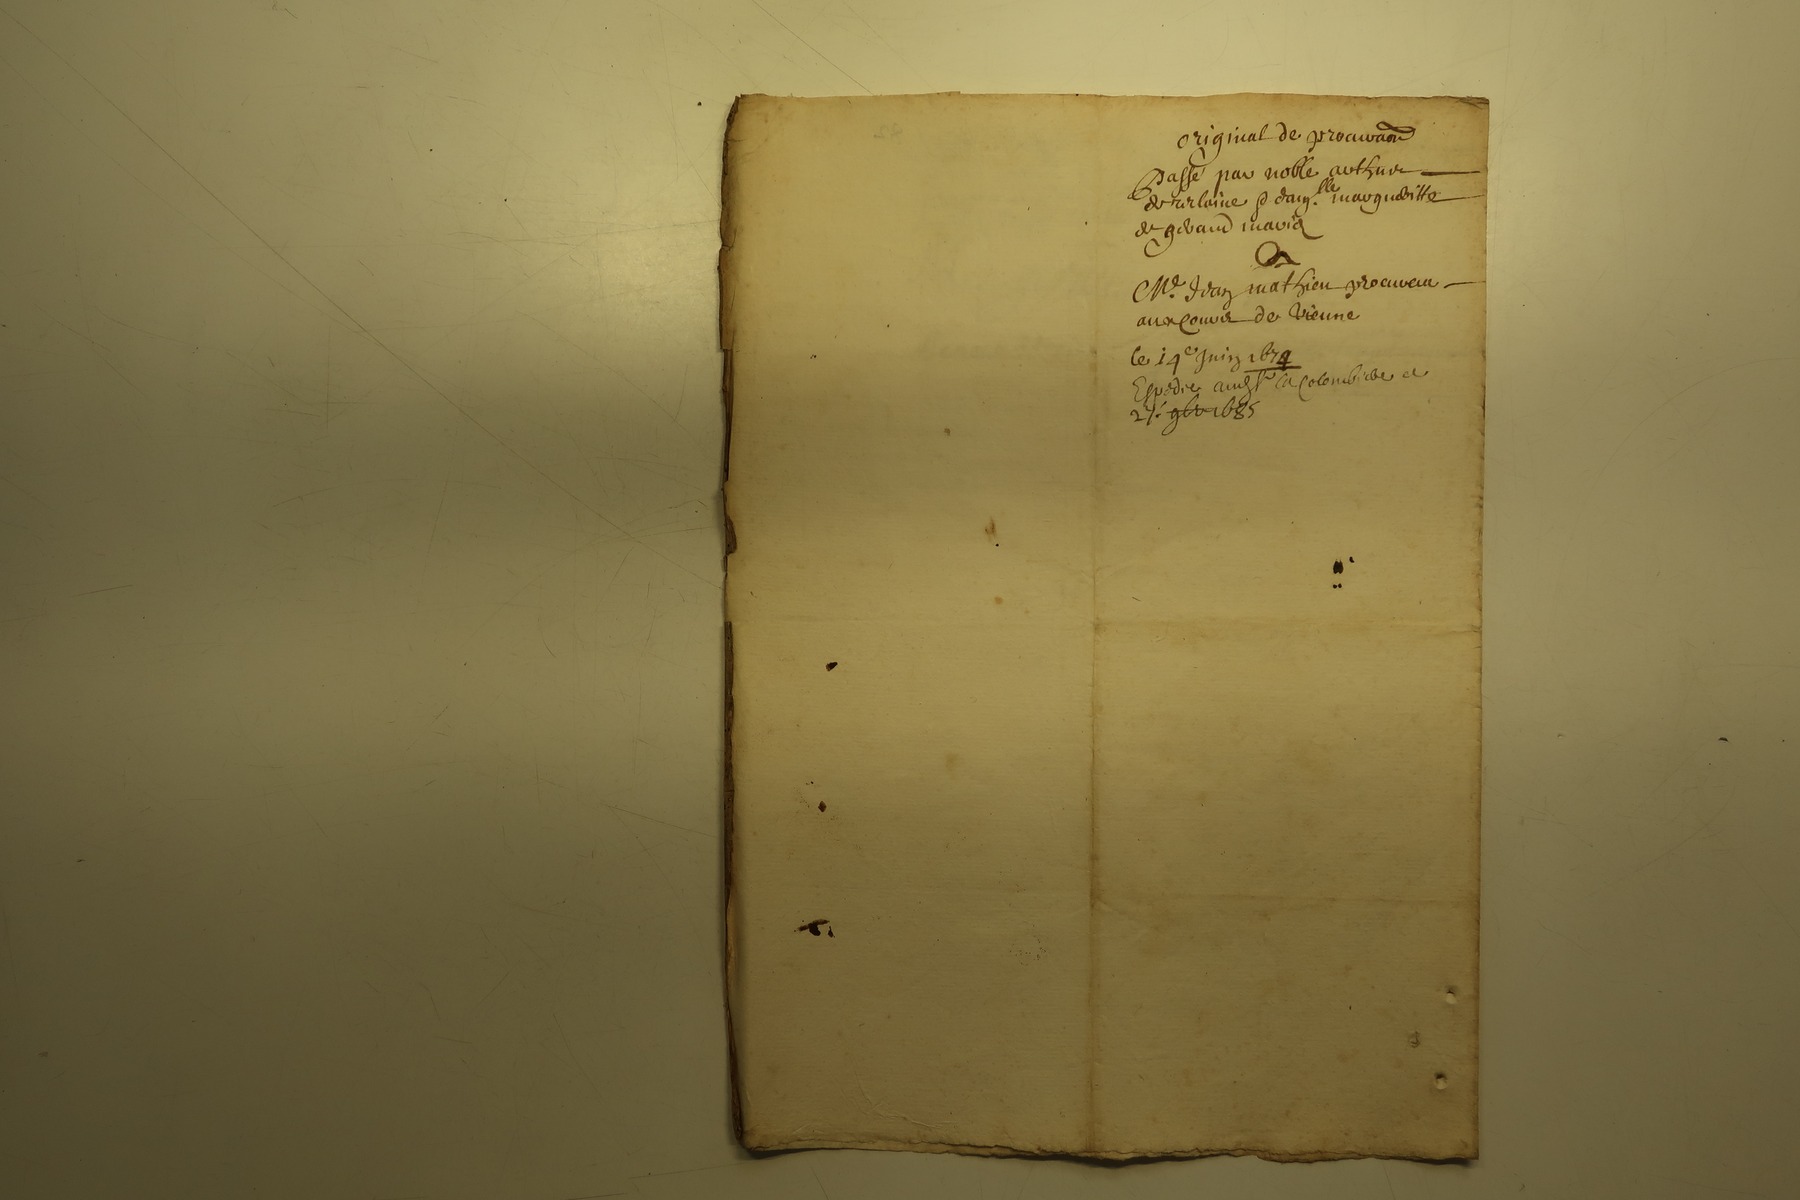 original de procuraon
Passé par noble arthur
de & dam.lle margueritte
de gerand mariés
A
Me. Jean mathieu procureur
aux Cours de Vienne
le 14e Juin 1674
Expedié la Colombiere ce
27e 9bre 1685